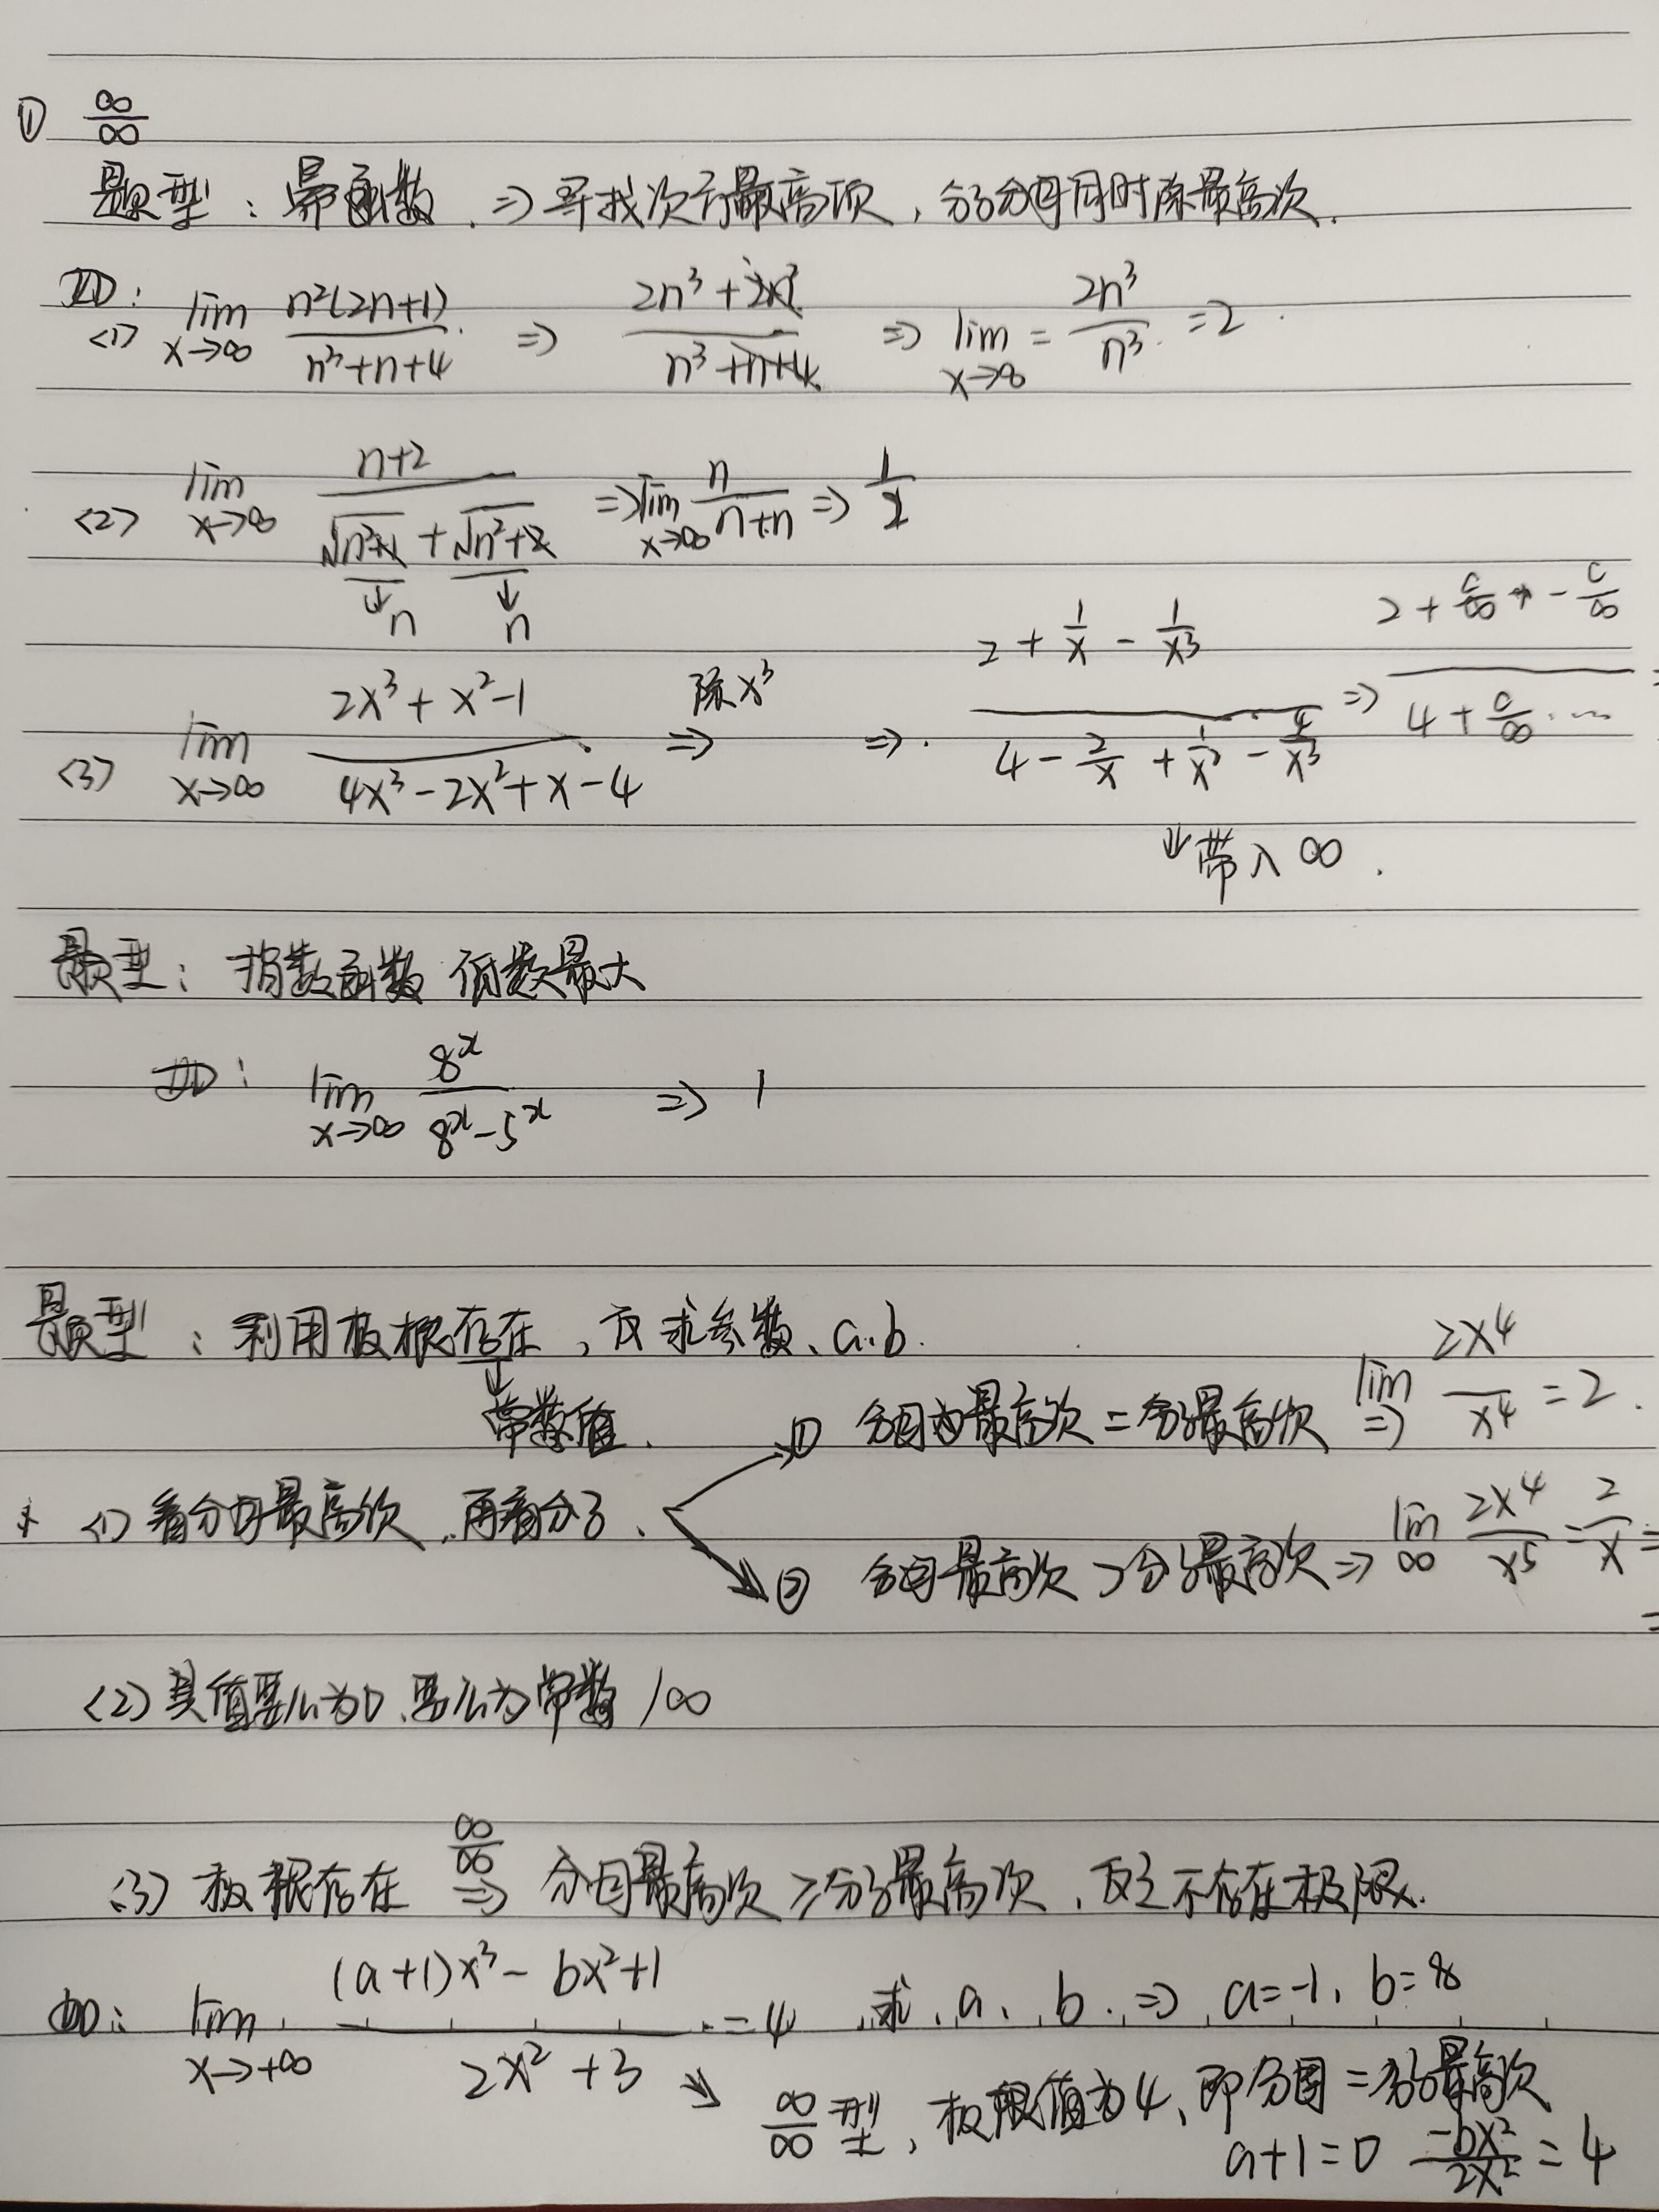 ① ∞/∞
题型：幂函数 ⇒ 寻找次方最高项，分子分母同时除最高次.
如：
<1> lim x→∞ n²(2n+1)/(n³+n+4) ⇒ (2n³+n²)/(n³+n+4) ⇒ lim x→∞ = 2n³/n³ = 2
<2> lim x→∞ (n+2)/(√(n²+1) + √(n²+2)) ⇒ lim x→∞ n/(n+n) ⇒ 1/2
↓n ↓n
<3> lim x→∞ (2x³+x²-1)/(4x³-2x²+x-4) ⇒ 除x³ ⇒ (2 + 1/x - 1/x³)/(4 - 2/x + 1/x² - 4/x³) ⇒ (2 + c/∞ - c/∞)/(4 + c/∞ ...) =
↓带入∞.
题型：指数函数 低数最大
如：lim x→∞ 8ˣ/(8ˣ-5ˣ) ⇒ 1
题型：利用极根存在，反求参数、a.b.
↓常数值.
① 分母最高次 = 分子最高次 lim ⇒ 2x⁴/x⁴ = 2.
* <1> 看分母最高次，再看分子.
② 分母最高次 > 分子最高次 ⇒ lim ∞ 2x⁴/x⁵ = 2/x =
<2> 其值要么为0、要么为常数/∞
<3> 极根存在 ∞/∞ ⇒ 分母最高次 ≥ 分子最高次，反之不存在极限.
如：lim x→+∞ ((a+1)x³ - bx²+1)/(2x²+3) = 4 求 a、b. ⇒ a=-1, b=8
∞/∞型，极限值为4、即分母=分子最高次
a+1=0 -bx²/2x² = 4